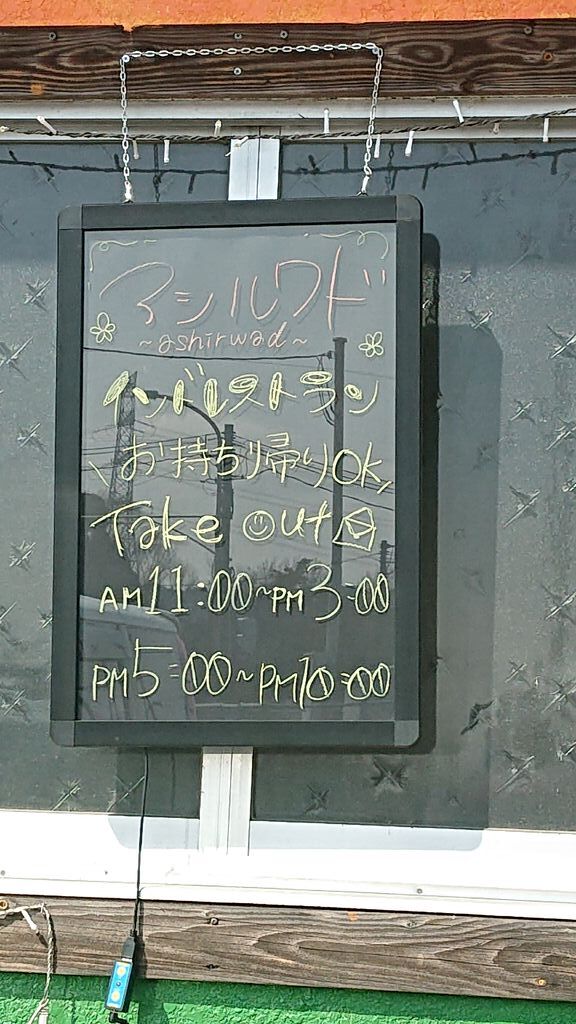 アシルワド
~ashirwad~
インドレストラン
\お持ち帰りOK/
Take out
AM11:00~PM3:00
PM5:00~PM10:00